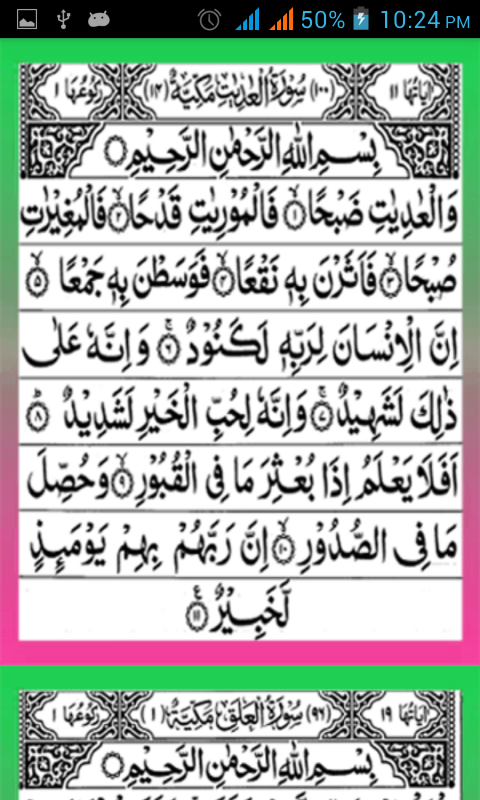 50% 10:24 PM
اٰيَاتُهَا ١١ (١٠٠) سُوْرَةُ الْعٰدِيٰتِ مَكِّيَّةٌ (١٤) رُكُوْعُهَا ١
بِسْمِ اللّٰهِ الرَّحْمٰنِ الرَّحِيْمِ
وَالْعٰدِيٰتِ ضَبْحًا ۙ‏﴿١﴾ فَالْمُوْرِيٰتِ قَدْحًا ۙ‏﴿٢﴾ فَالْمُغِيْرٰتِ
صُبْحًا ۙ‏﴿٣﴾ فَاَثَرْنَ بِهٖ نَقْعًا ۙ‏﴿٤﴾ فَوَسَطْنَ بِهٖ جَمْعًا ۙ‏﴿٥﴾
اِنَّ الْاِنْسَانَ لِرَبِّهٖ لَكَنُوْدٌ ۚ‏﴿٦﴾ وَاِنَّهٗ عَلٰى
ذٰلِكَ لَشَهِيْدٌ ۚ‏﴿٧﴾ وَاِنَّهٗ لِحُبِّ الْخَيْرِ لَشَدِيْدٌ ؕ‏﴿٨﴾
اَفَلَا يَعْلَمُ اِذَا بُعْثِرَ مَا فِى الْقُبُوْرِ ۙ‏﴿٩﴾ وَحُصِّلَ
مَا فِى الصُّدُوْرِ ۙ‏﴿١٠﴾ اِنَّ رَبَّهُمْ بِهِمْ يَوْمَئِذٍ
لَّخَبِيْرٌ ‏﴿١١﴾ ع
اٰيَاتُهَا ١٩ (٩٦) سُوْرَةُ الْعَلَقِ مَكِّيَّةٌ (١) رُكُوْعُهَا ١
بِسْمِ اللّٰهِ الرَّحْمٰنِ الرَّحِيْمِ